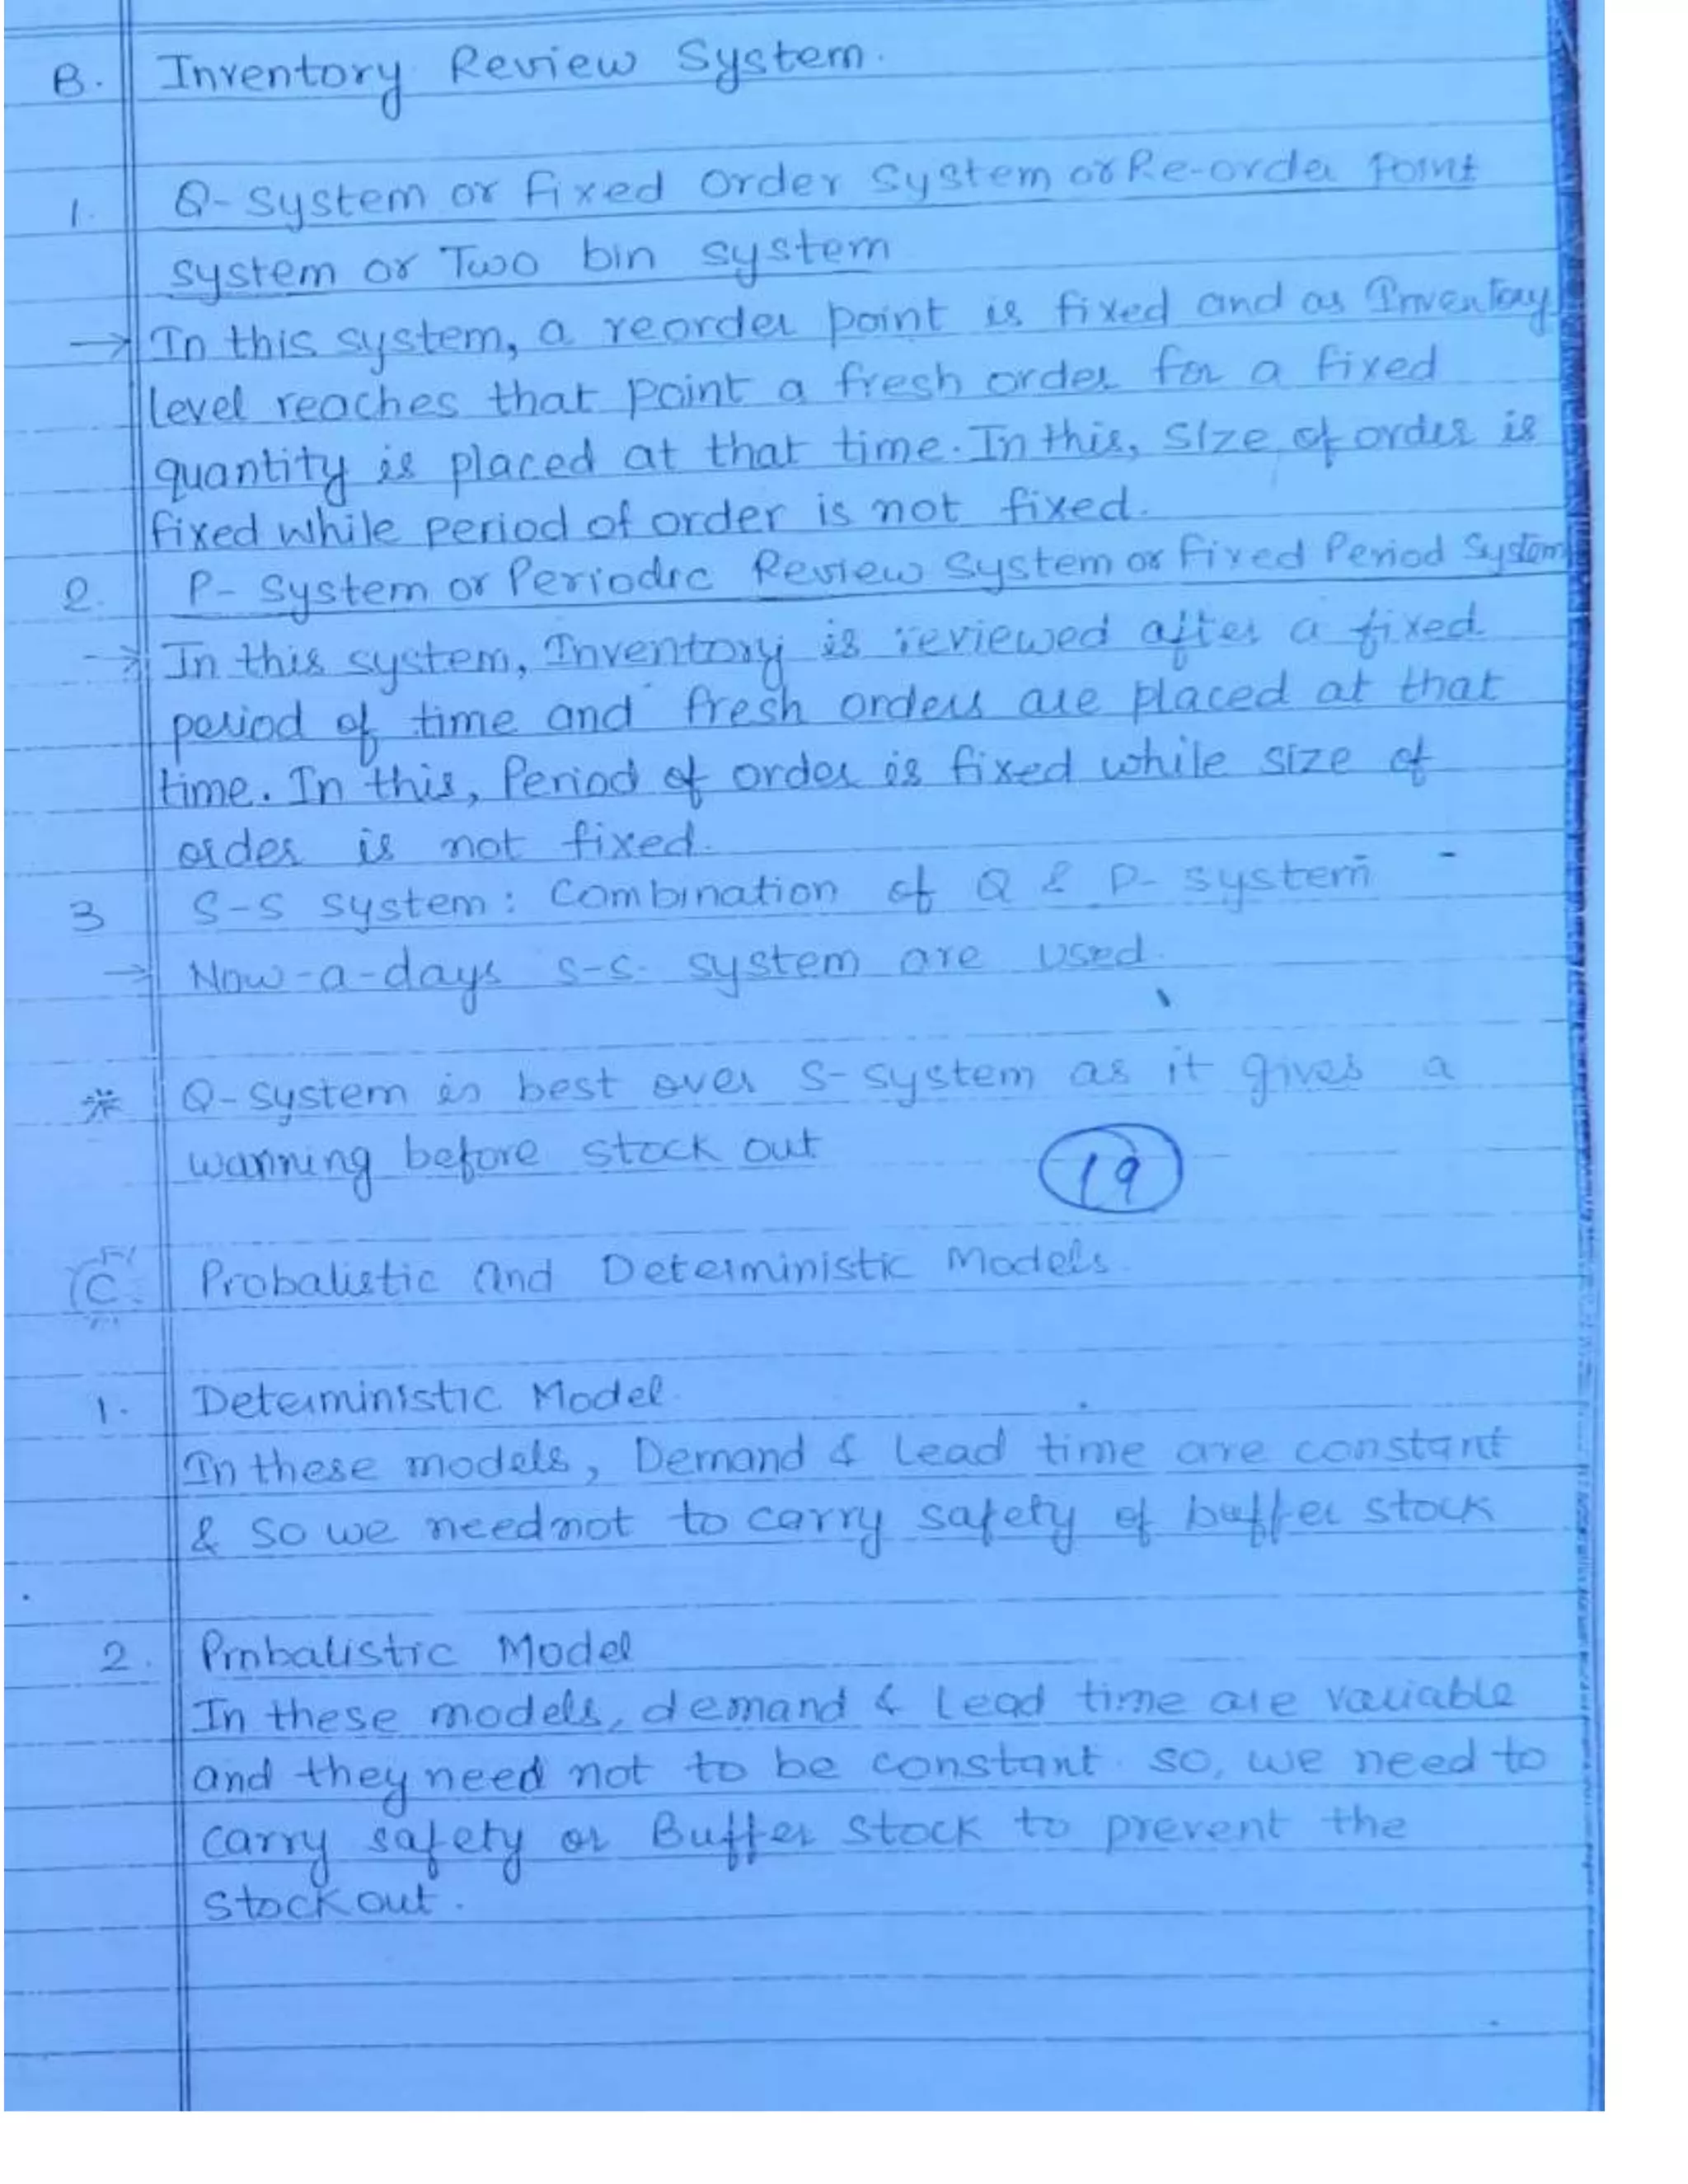 B. Inventory Review System.
1. Q-System or Fixed Order System or Re-order Point
system or Two bin system
→ In this system, a reorder point is fixed and as Inventory
level reaches that point a fresh order for a fixed
quantity is placed at that time. In this, size of order is
fixed while period of order is not fixed.
2. P- System or Periodic Review System or Fixed Period System
→ In this system, Inventory is reviewed after a fixed
period of time and fresh orders are placed at that
time. In this, Period of order is fixed while size of
order is not fixed.
3 S-S system: Combination of Q & P- system
→ Now-a-days s-s. system are used.
* Q-system is best over S-system as it gives a
warning before stock out
19
C. Probalistic and Deterministic Models.
1. Deterministic Model.
In these models, Demand & Lead time are constant
& so we need not to carry safety of buffer stock
2. Probalistic Model
In these models, demand & Lead time are variable
and they need not to be constant. so, we need to
carry safety or Buffer stock to prevent the
stock out.